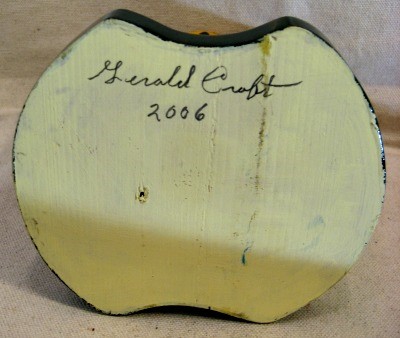 Gerald Craft
2006